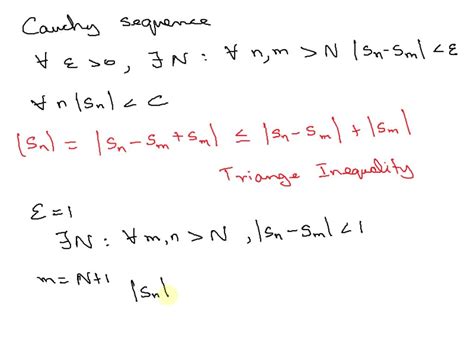 Cauchy sequence
∀ ε>0, ∃N : ∀ n,m > N |Sn-Sm| < ε
∀ n |Sn| < C
|Sn| = |Sn - Sm + Sm| ≤ |Sn - Sm| + |Sm|
Triange Inequality
ε = 1
∃N : ∀ m,n > N , |Sn - Sm| < 1
m = N+1
|Sn|